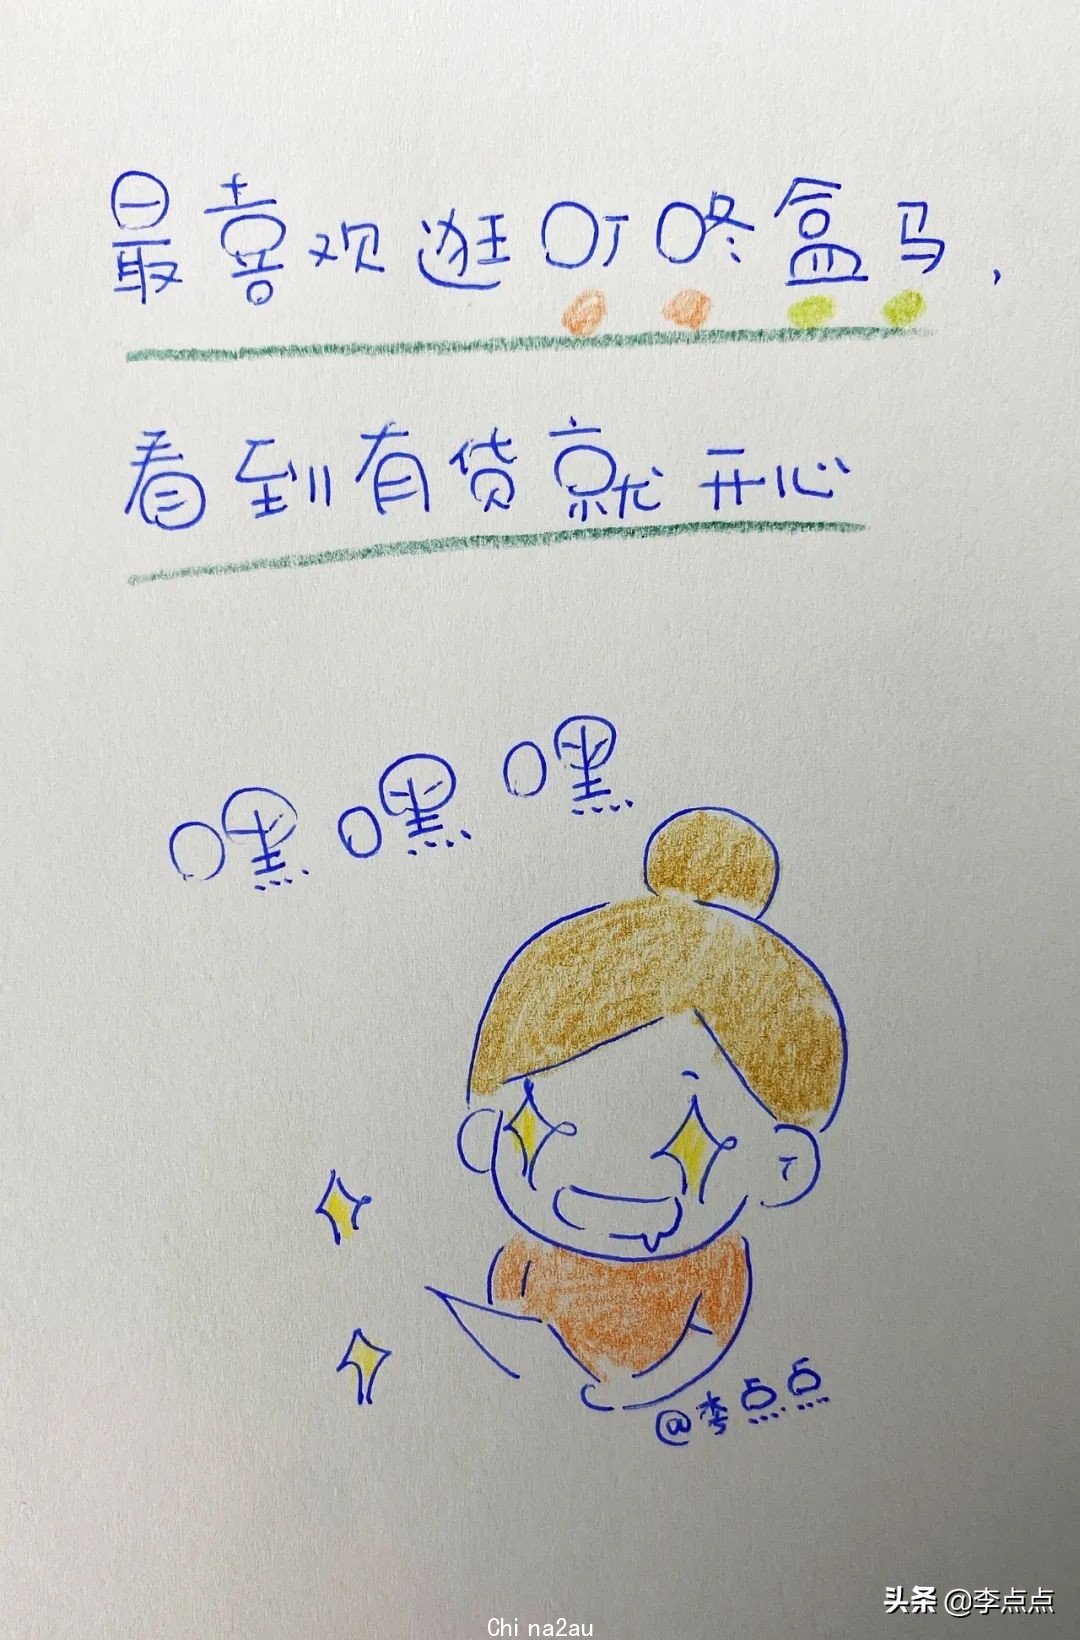 最喜观逛叮咚盒马，
看到有货就开心
嘿嘿嘿
@李点点
头条 @李点点
China2au